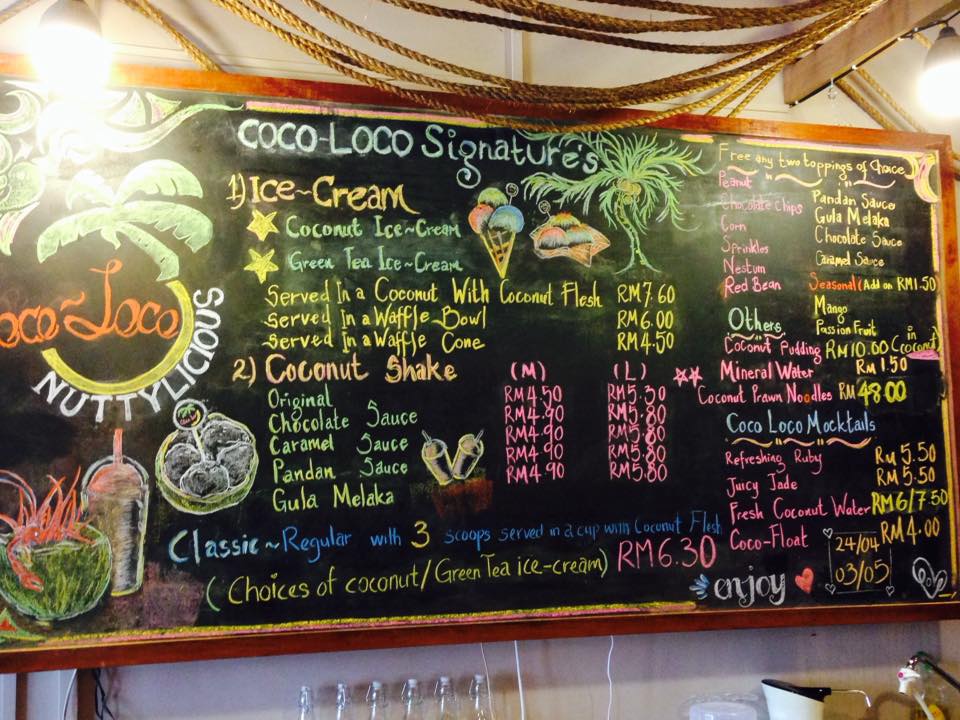 oco~Loco
NUTTYLICIOUS
COCO-LOCO Signature's
1) Ice~Cream
Coconut Ice~Cream
Green Tea Ice~Cream
Served In a Coconut With Coconut Flesh RM7.60
Served In a Waffle Bowl RM6.00
Served In a Waffle Cone RM4.50
2) Coconut Shake (M) (L)
Original RM4.50 RM5.30
Chocolate Sauce RM4.90 RM5.80
Caramel Sauce RM4.90 RM5.80
Pandan Sauce RM4.90 RM5.80
Gula Melaka RM4.90 RM5.80
Classic~Regular with 3 scoops served in a cup with Coconut Flesh
(Choices of coconut/Green Tea ice-cream) RM6.30
Free any two toppings of Choice
Peanut
Chocolate Chips
Corn
Sprinkles
Nestum
Red Bean
Pandan Sauce
Gula Melaka
Chocolate Sauce
Caramel Sauce
Seasonal (Add on RM1.50
Mango
Passion Fruit
Others
Coconut Pudding RM10.00 in Coconut
Mineral Water RM1.50
Coconut Prawn Noodles RM48.00
Coco Loco Mocktails
Refreshing Ruby RM5.50
Juicy Jade RM5.50
Fresh Coconut Water RM6/7.50
Coco-Float RM4.00
24/04
03/05
enjoy